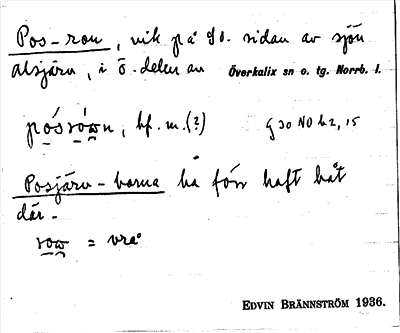 Pos-rou, vik på SO. sidan av sjön
Alsjärv, i ö. delen av Överkalix sn o. tg. Norrb. l.
pósròwn, bf. m. (?) g 30 NO h 2, 15
Posjärv-barna ha förr haft båt
där.
row = vrå
EDVIN BRÄNNSTRÖM 1936.